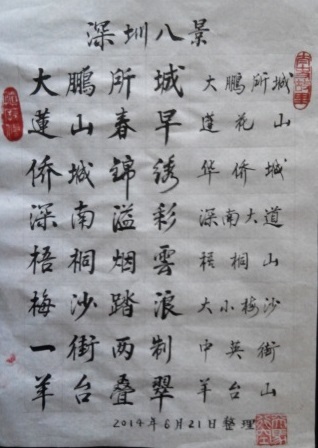 深圳八景
大鹏所城 大鹏所城
莲山春早 莲花山
侨城锦绣 华侨城
深南溢彩 深南大道
梧桐烟雲 梧桐山
梅沙踏浪 大小梅沙
一街两制 中英街
羊台叠翠 羊台山
2014年6月21日整理